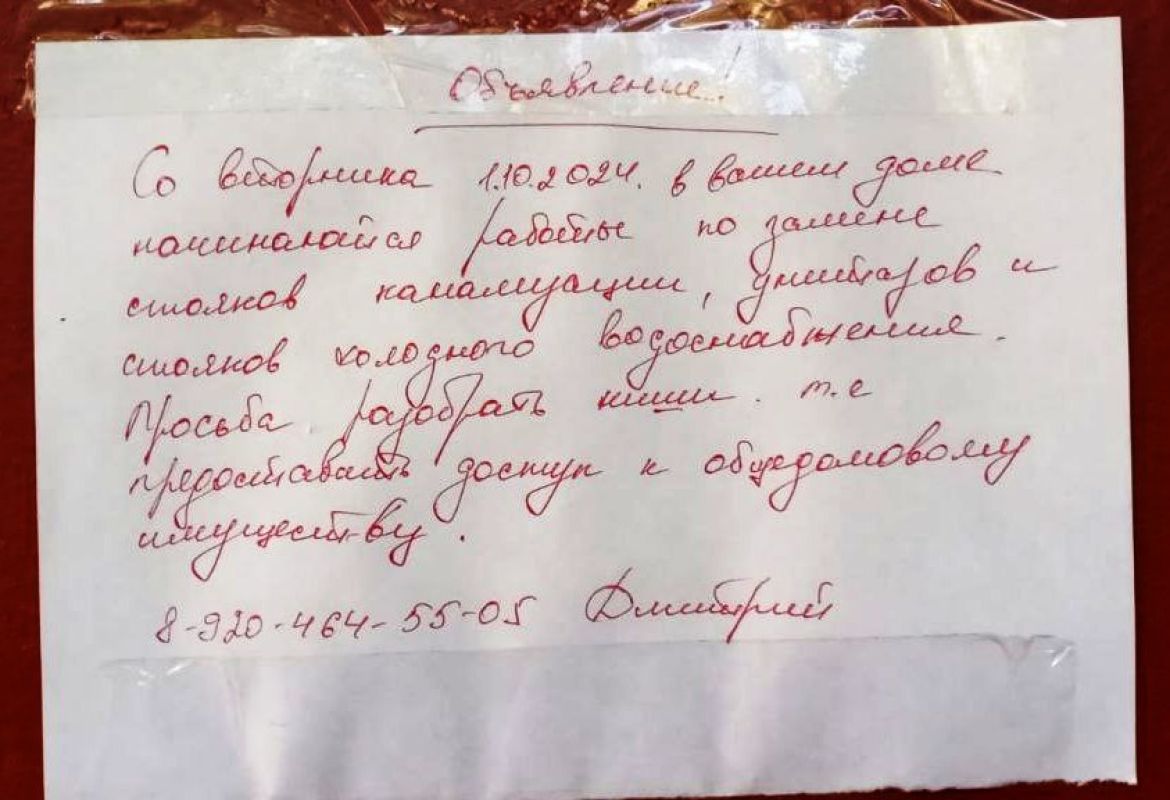 Объявление!
Со вторника 1.10.2024. в вашем доме
начинаются работы по замене
стояков канализации, унитазов и
стояков холодного водоснабжения.
Просьба разобрать ниши. т.е
предоставить доступ к общедомовому
имуществу.
8-920-464-55-05 Дмитрий